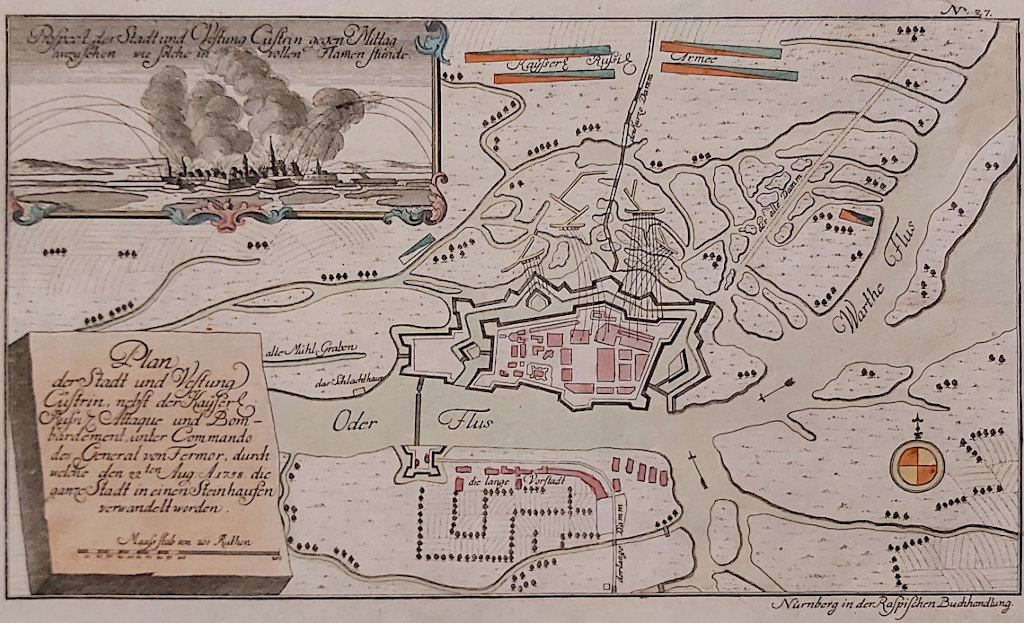 No. 27.
Prospect der Stadt und Vestung Cüstrin gegen Mittag
anzusehen wie solche in vollen Flamen stunde.
Kayserl. Russisl. Armee
der kurze Damm
der alte Damm
Warthe Flus
alte Mühl Graben
das Schlachthaus
Oder Flus
Plan
der Stadt und Vestung
Cüstrin, nebst der Kayserl.
Russis. Attaque und Bom-
bardement, unter Commando
des General von Fermor, durch
welche den 22ten Aug. A. 1758. die
ganze Stadt in einen Steinhaufen
verwandelt worden.
Maass stab von 200 Ruthen
die lange Vorstadt
der lange Damm
Nürnberg in der Raspischen Buchhandlung.